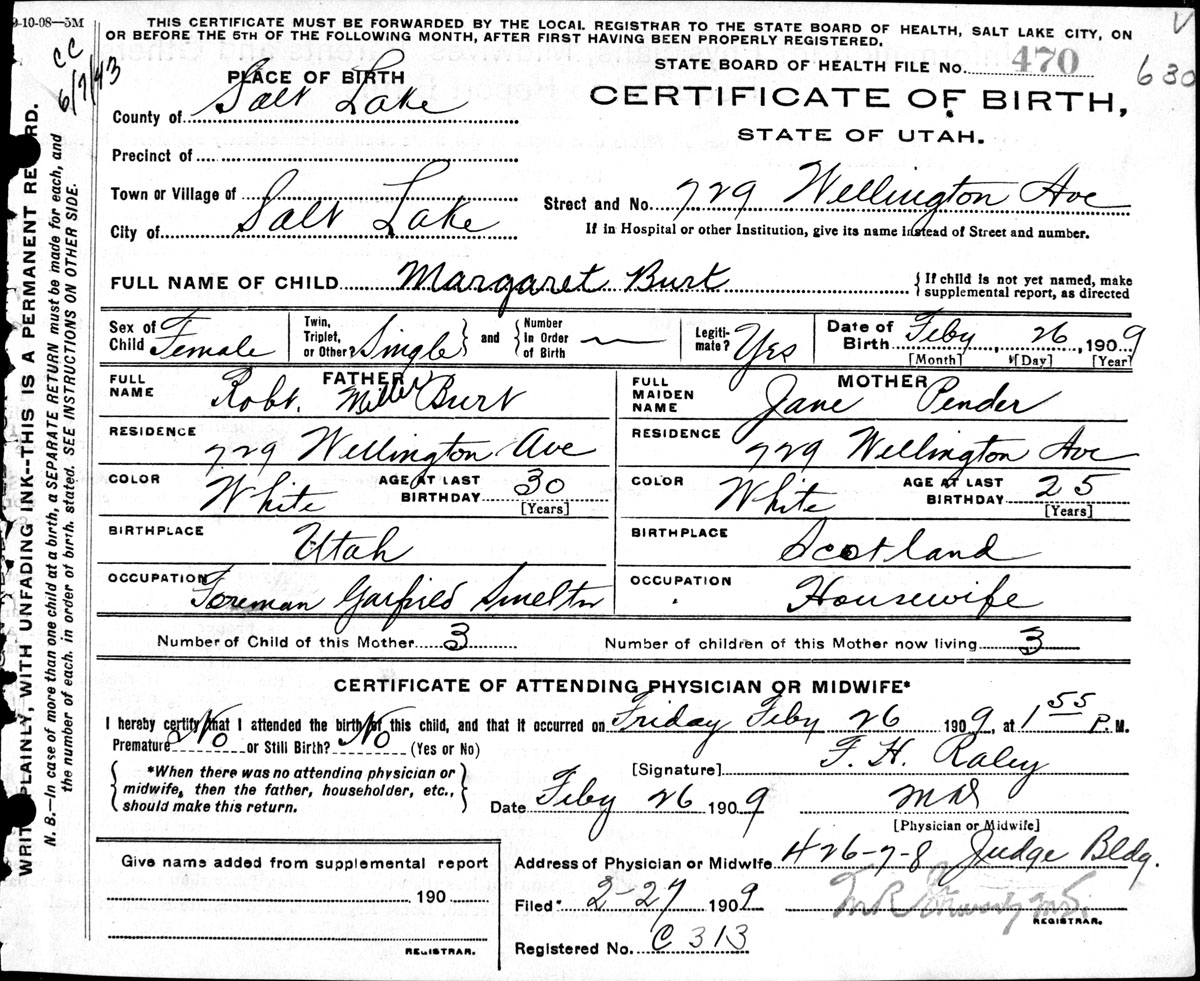 9-10-08—5M
THIS CERTIFICATE MUST BE FORWARDED BY THE LOCAL REGISTRAR TO THE STATE BOARD OF HEALTH, SALT LAKE CITY, ON
OR BEFORE THE 5TH OF THE FOLLOWING MONTH, AFTER FIRST HAVING BEEN PROPERLY REGISTERED.
CC
6/7/43
STATE BOARD OF HEALTH FILE No. 470
630
PLACE OF BIRTH
County of Salt Lake
CERTIFICATE OF BIRTH,
STATE OF UTAH.
Precinct of
Town or Village of
City of Salt Lake
Street and No. 729 Wellington Ave
If in Hospital or other Institution, give its name instead of Street and number.
FULL NAME OF CHILD Margaret Burt
{ If child is not yet named, make
supplemental report, as directed
Sex of Child Female
Twin, Triplet, or Other? Single } and { Number In Order of Birth —
Legitimate? Yes
Date of Birth Feby 26, 1909
[Month] [Day] [Year]
FATHER
FULL NAME Robt. Miller Burt
RESIDENCE 729 Wellington Ave
COLOR White AGE AT LAST BIRTHDAY 30
[Years]
BIRTHPLACE Utah
OCCUPATION Foreman Garfield Smelter
MOTHER
FULL MAIDEN NAME Jane Pender
RESIDENCE 729 Wellington Ave
COLOR White AGE AT LAST BIRTHDAY 25
[Years]
BIRTHPLACE Scotland
OCCUPATION Housewife
Number of Child of this Mother 3
Number of children of this Mother now living 3
CERTIFICATE OF ATTENDING PHYSICIAN OR MIDWIFE*
I hereby certify that I attended the birth of this child, and that it occurred on Friday Feby 26 1909, at 1 55 P.M.
Premature No or Still Birth? No (Yes or No)
{ *When there was no attending physician or
midwife, then the father, householder, etc.,
should make this return. }
[Signature] F. H. Raley
Date Feby 26 1909
MD
[Physician or Midwife]
Give name added from supplemental report
190
REGISTRAR.
Address of Physician or Midwife 426-7-8 Judge Bldg.
Filed 2-27 1909
REGISTRAR.
Registered No. C 313
WRITE PLAINLY, WITH UNFADING INK--THIS IS A PERMANENT RECORD.
N. B.—In case of more than one child at a birth, a SEPARATE RETURN must be made for each, and
the number of each, in order of birth, stated. SEE INSTRUCTIONS ON OTHER SIDE.